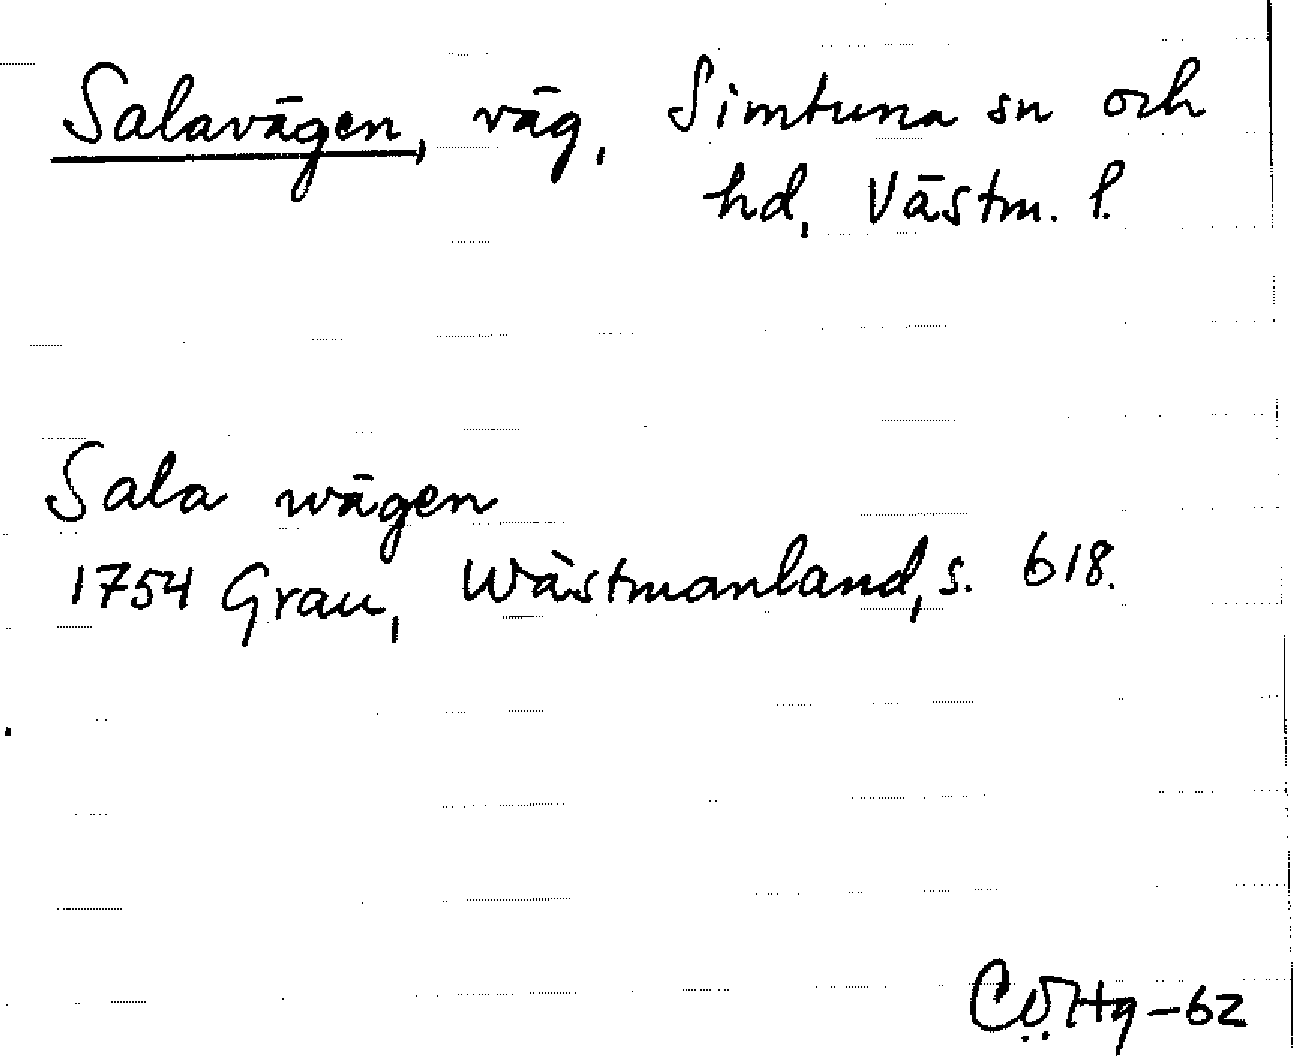 Salavägen, väg, Simtuna sn och
hd, Västm. l.
Sala wägen
1754 Grau, Wästmanland, s. 618.
-62